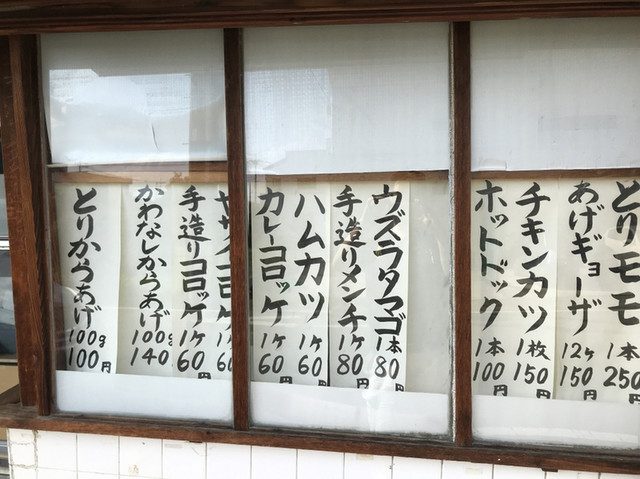 とりモモ 1本 250円
あげギョーザ 12ケ 150円
チキンカツ 1枚 150円
ホットドック 1本 100円
ウズラタマゴ 1本 80円
手造りメンチ 1ケ 80円
ハムカツ 1ケ 60円
カレーコロッケ 1ケ 60円
ヤサイコロッケ 1ケ 60円
手造りコロッケ 1ケ 60円
かわなしからあげ 100g 140円
とりからあげ 100g 100円